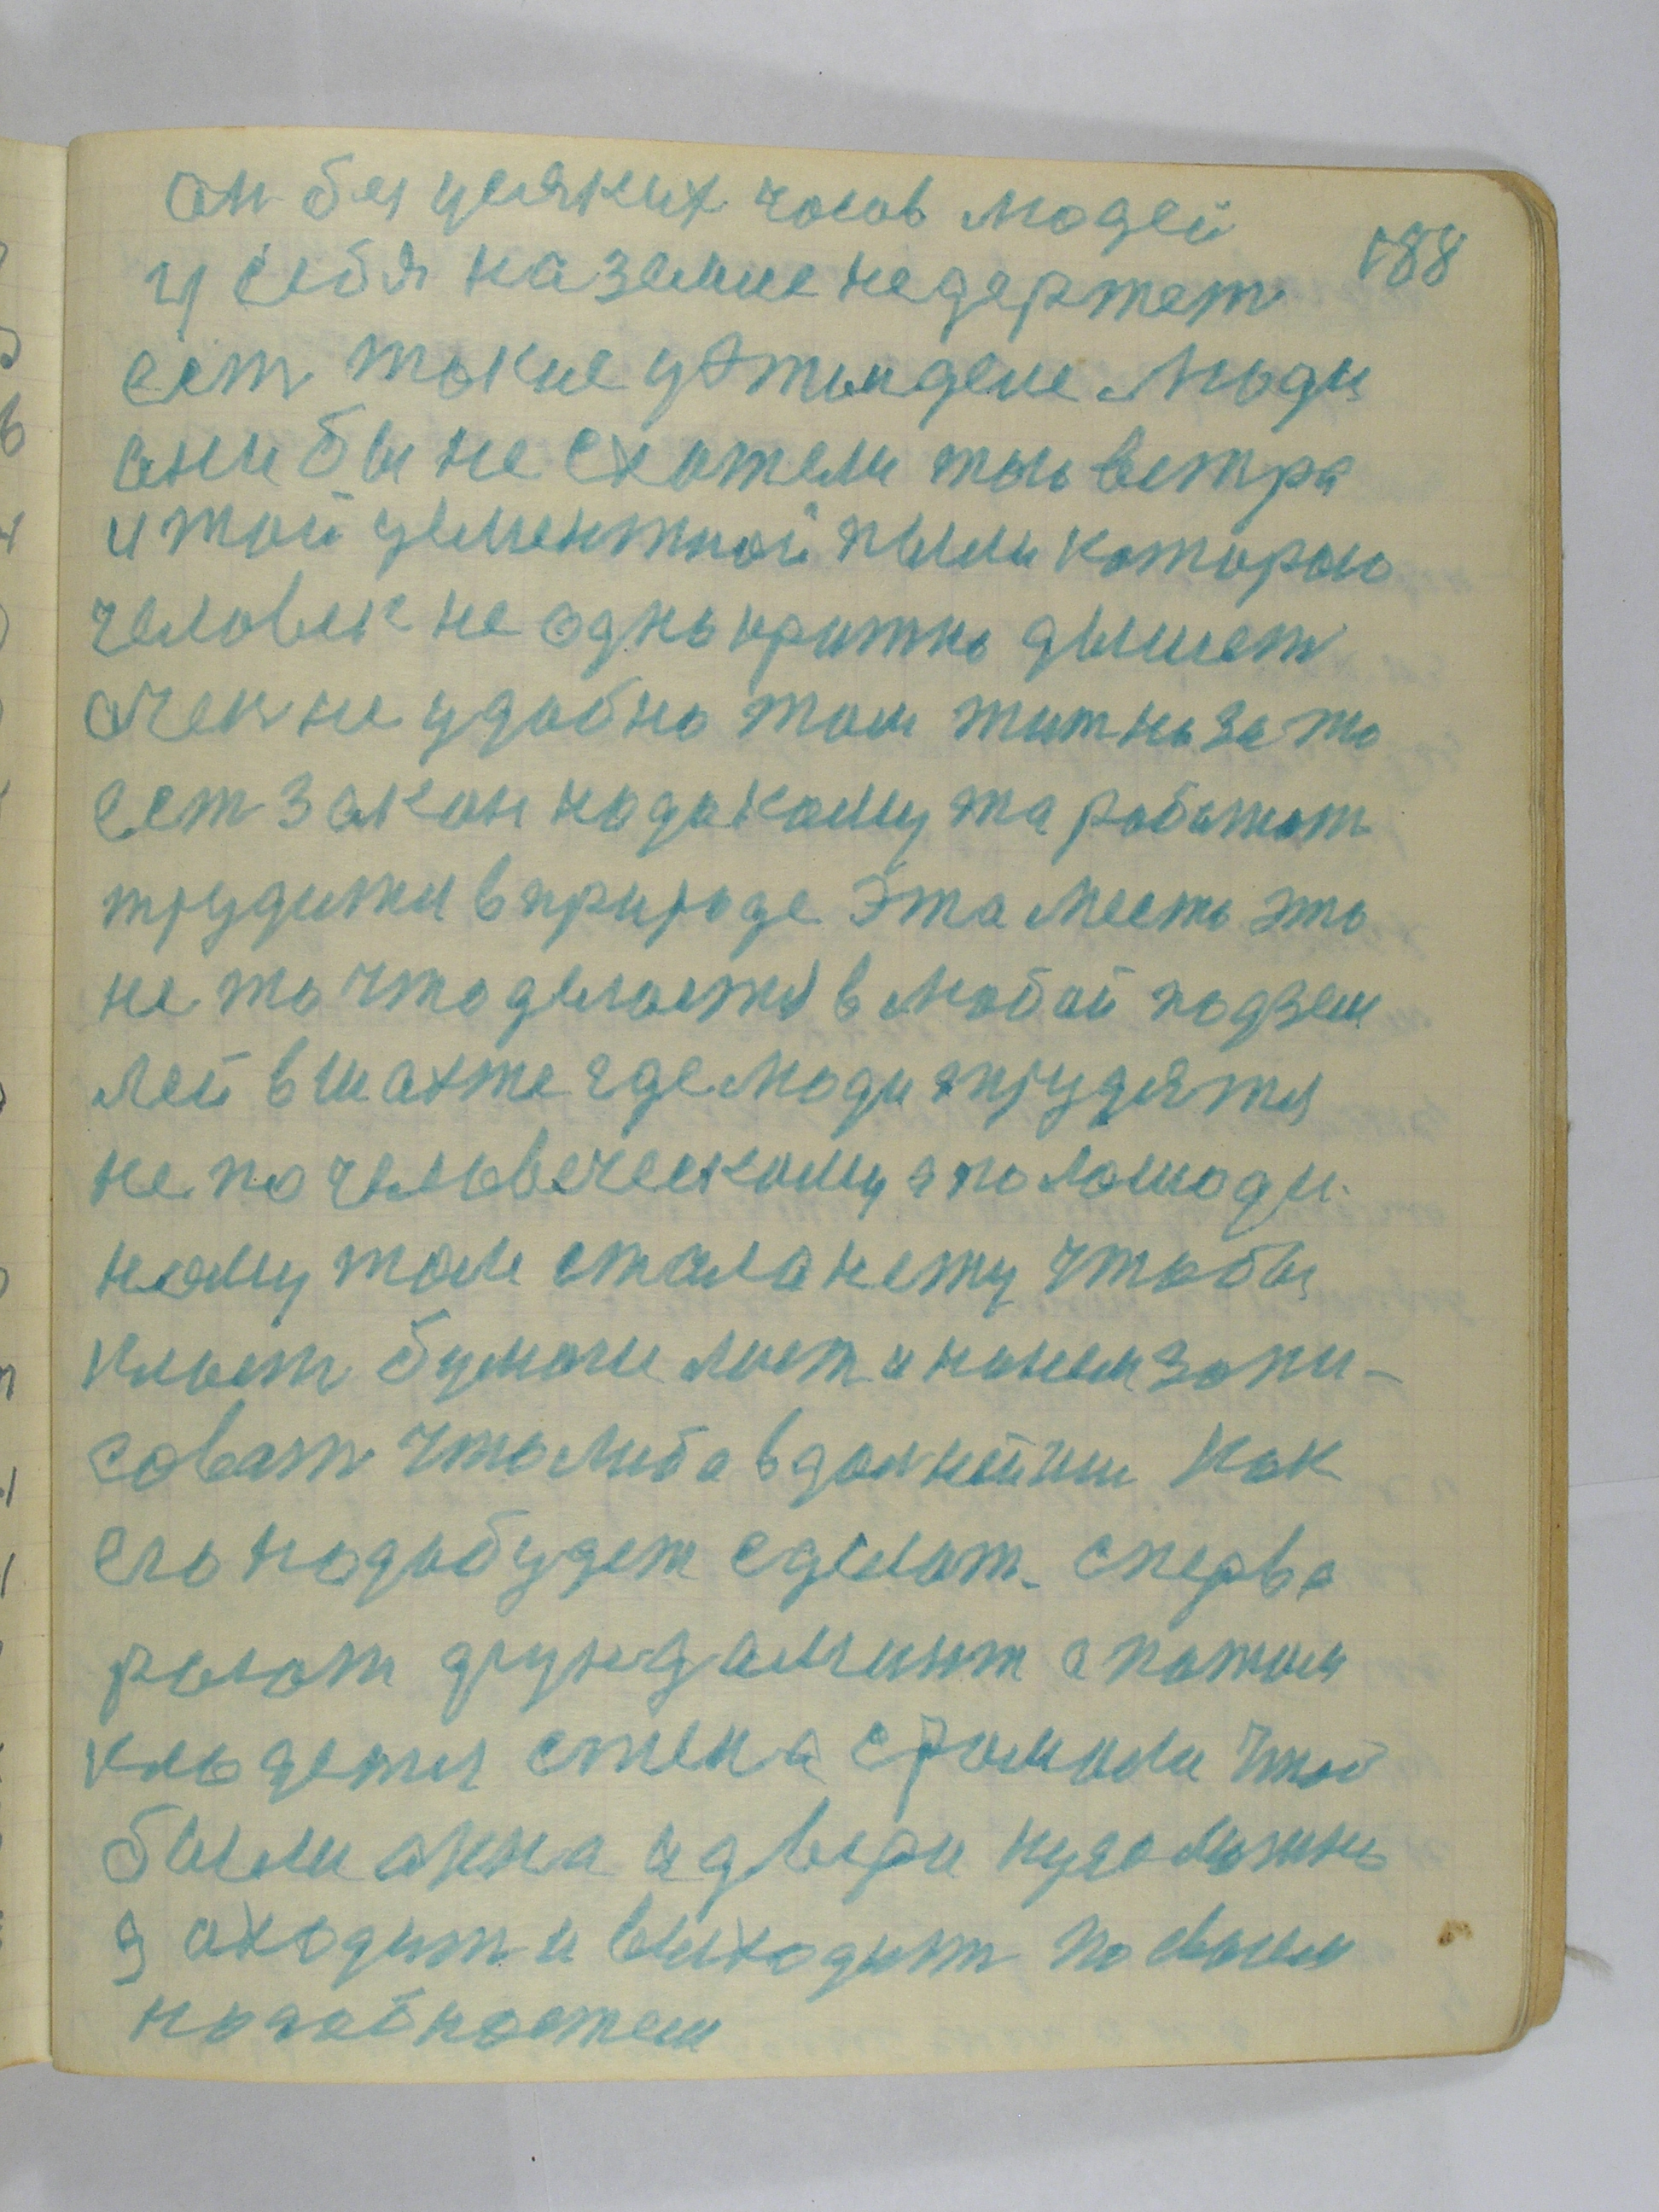 он бы усяких часов людей
188
у себя наземле не держет
ест такие у этом деле люди
они бы не схотели таго ветра
и той цементной пыли которою
человек не однократно дышет
очен не удобно там жит но за то
ест закон надо кому та работат
трудится в природе Эта место это
не то что делается в любой подзем
лей в шахте где люди трудятся
не по человеческому а по лошоди
ному там стала нету чтобы
класт бумаги лист и на нем запи-
соват что либо в далнейшим как
его надо будет сделат. сперва
роют фундаминт а потом
кладется стена с ромами чтоб
были акна и двери куда можно
заходит и выходит по своем
надобностем